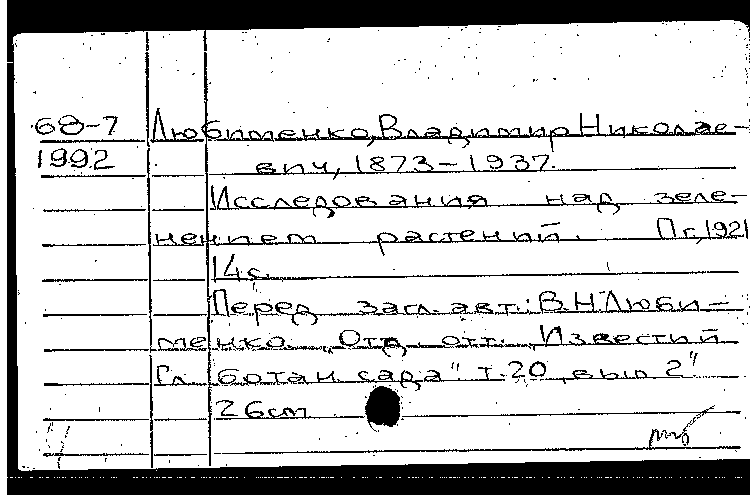 68-7 Любименко, Владимир Николае-
1992 вич, 1873-1937.
Исследования над зеле-
нением растений. Пг, 1921
14с.
Перед загл. авт.: В.Н. Люби-
менко. "Отд. отт. "Известий
Гл. ботан. сада" т. 20, вып 2"
26cm